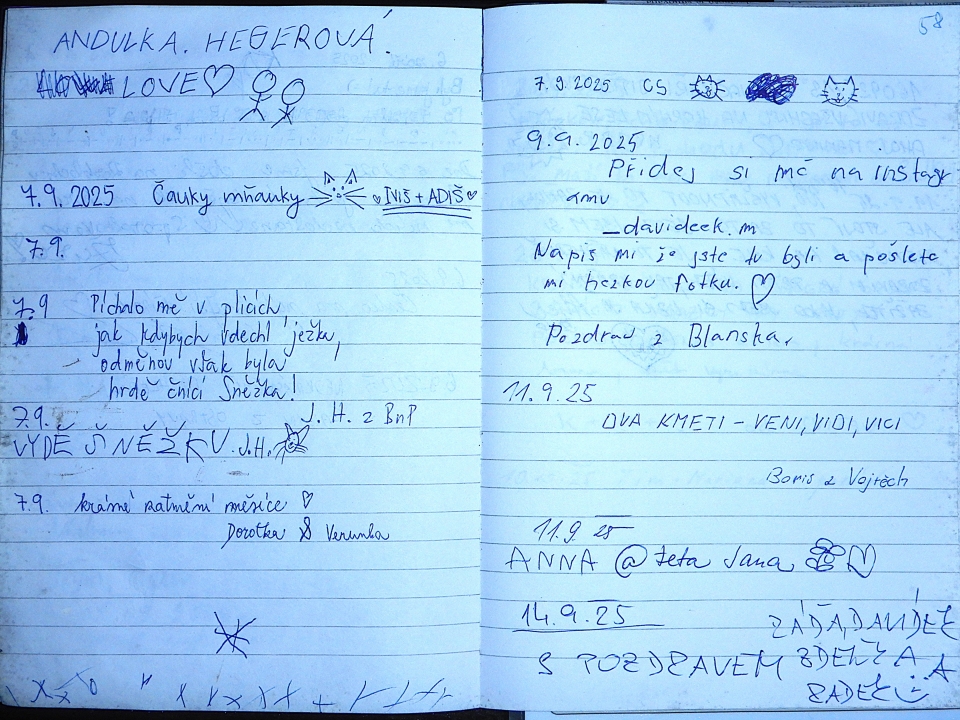 ANDULKA. HEGEROVÁ.
LOVE♡
7.9.2025 Čauky mňauky IVIŠ + ADIŠ
7.9.
7.9 Píchalo mě v plicích,
jak kdybych vdechl ježka,
odměnou však byla
hrdě čnící Sněžka!
J. H. z BnP
7.9.
VÝDĚ SNĚŽKU. J.H.
7.9. krásné zatmění měsíce ♡
Dorotka & Verunka
58
7.9.2025 CS
9.9.2025
Přidej si mě na instagr
amu
_davideek.m
Napiš mi že jste tu byli a pošlete
mi hezkou fotku. ♡
Pozdrav z Blanska,
11.9.25
DVA KMETI – VENI, VIDI, VICI
Boris a Vojtěch
11.9 25
ANNA @ teta Jana ♡
14.9.25
S POZDRAVEM